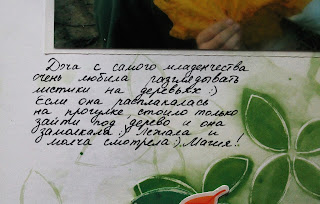 Доча с самого младенчества
очень любила разглядывать
листики на деревьях :)
Если она расплакалась
на прогулке, стоило только
зайти под дерево и она
замолкала :) Лежала и
молча смотрела :) Магия!